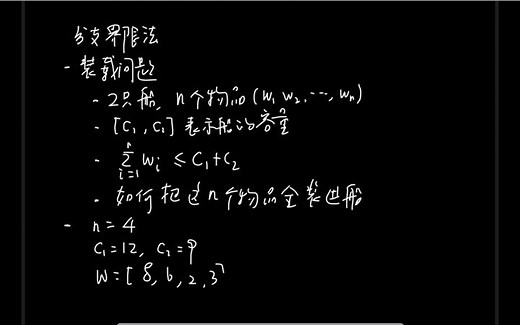 分支界限法
- 装载问题
- 2只船, n个物品 (w₁ w₂, ..., wₙ)
- [C₁, C₁] 表示船的容量
- \sum_{i=1}^{n} wᵢ ≤ C₁+C₂
- 如何把这n个物品全装进船
- n=4
C₁=12, C₂=9
W=[8, 6, 2, 3]